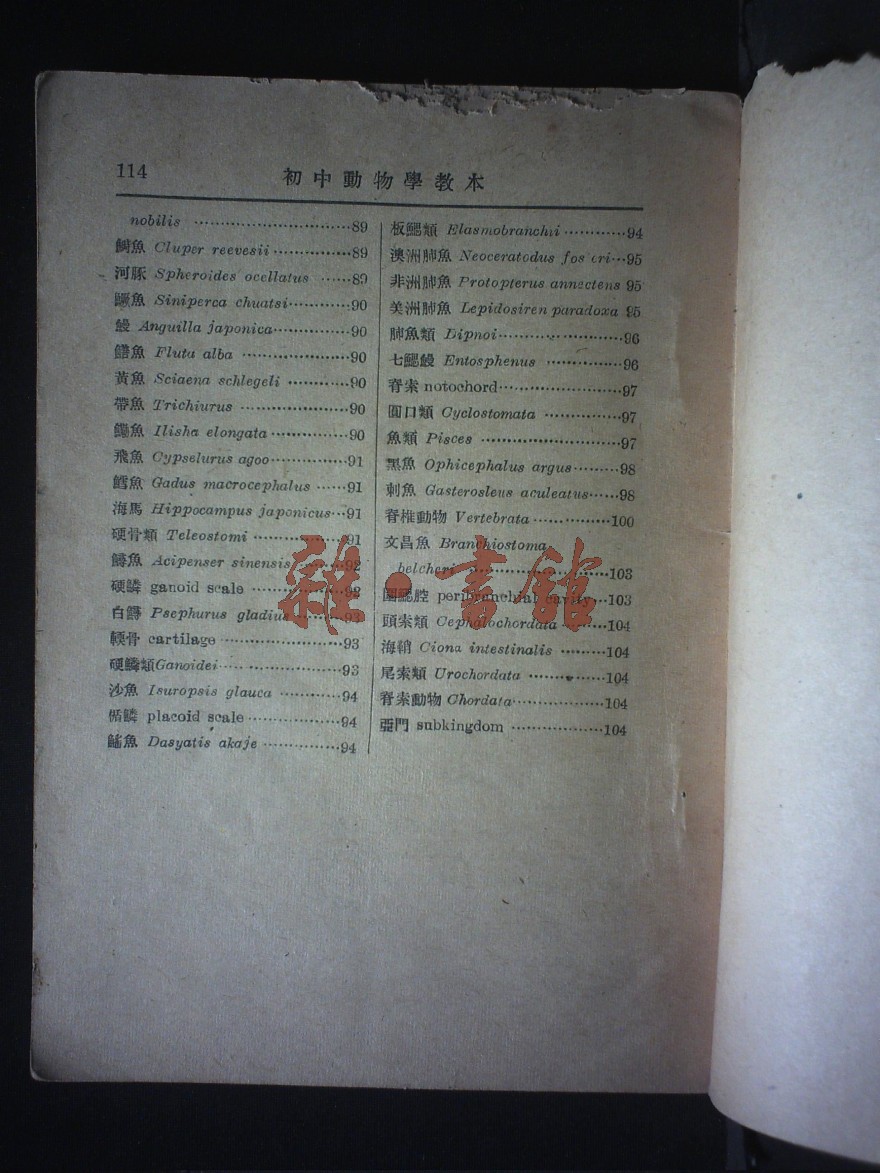 114
初中動物學教本
nobilis ……………………89
鰣魚 Clupor reevesii ……………89
河豚 Spheroides ocellatus ……89
鱖魚 Siniperca chuatsi…………90
鰻 Anguilla japonica……………90
鱔魚 Fluta alba ………………90
黃魚 Sciaena schlegeli …………90
帶魚 Trichiurus ………………90
鰳魚 Ilisha elongata……………90
飛魚 Cypselurus agoo……………91
鱈魚 Gadus macrocephalus ……91
海馬 Hippocampus japonicus…91
硬骨類 Teleostomi ………………91
鱘魚 Acipenser sinensis…………92
硬鱗 ganoid scale ………………92
白鱘 Psephurus gladius…………93
輭骨 cartilage …………………93
硬鱗類Ganoidei…………………93
沙魚 Isuropsis glauca …………94
楯鱗 placoid scale ……………94
魚 Dasyatis akaje ……………94
板鰓類 Elasmobranchii …………94
澳洲肺魚 Neoceratodus fos eri…95
非洲肺魚 Protopterus annectens 95
美洲肺魚 Lepidosiren paradoxa 95
肺魚類 Dipnoi……………………96
七鰓鰻 Entosphenus ……………96
脊索 notochord…………………97
圓口類 Cyclostomata ……………97
魚類 Pisces ……………………97
黑魚 Ophicephalus argus………98
刺魚 Gasterosleus aculeatus……98
脊椎動物 Vertebrata ……………100
文昌魚 Branchiostoma
belcheri …………………………103
圍鰓腔 peribranchial cavity…103
頭索類 Cephalochordata ………104
海鞘 Ciona intestinalis ………104
尾索類 Urochordata ……………104
脊索動物 Chordata………………104
亞門 subkingdom ………………104
雜·書館